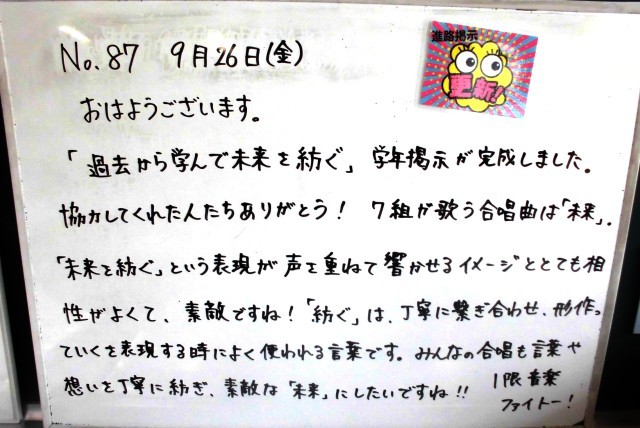 進路掲示
更新!
No.87 9月26日(金)
おはようございます。
「過去から学んで未来を紡ぐ」学年掲示が完成しました。
協力してくれた人たちありがとう! 7組が歌う合唱曲は「未来」。
「未来を紡ぐ」という表現が声を重ねて響かせるイメージととても相
性がよくて、素敵ですね!「紡ぐ」は、丁寧に繋ぎ合わせ、形作っ
ていくを表現する時によく使われる言葉です。みんなの合唱も言葉や
想いを丁寧に紡ぎ、素敵な「未来」にしたいですね!!
1限音楽
ファイトー!